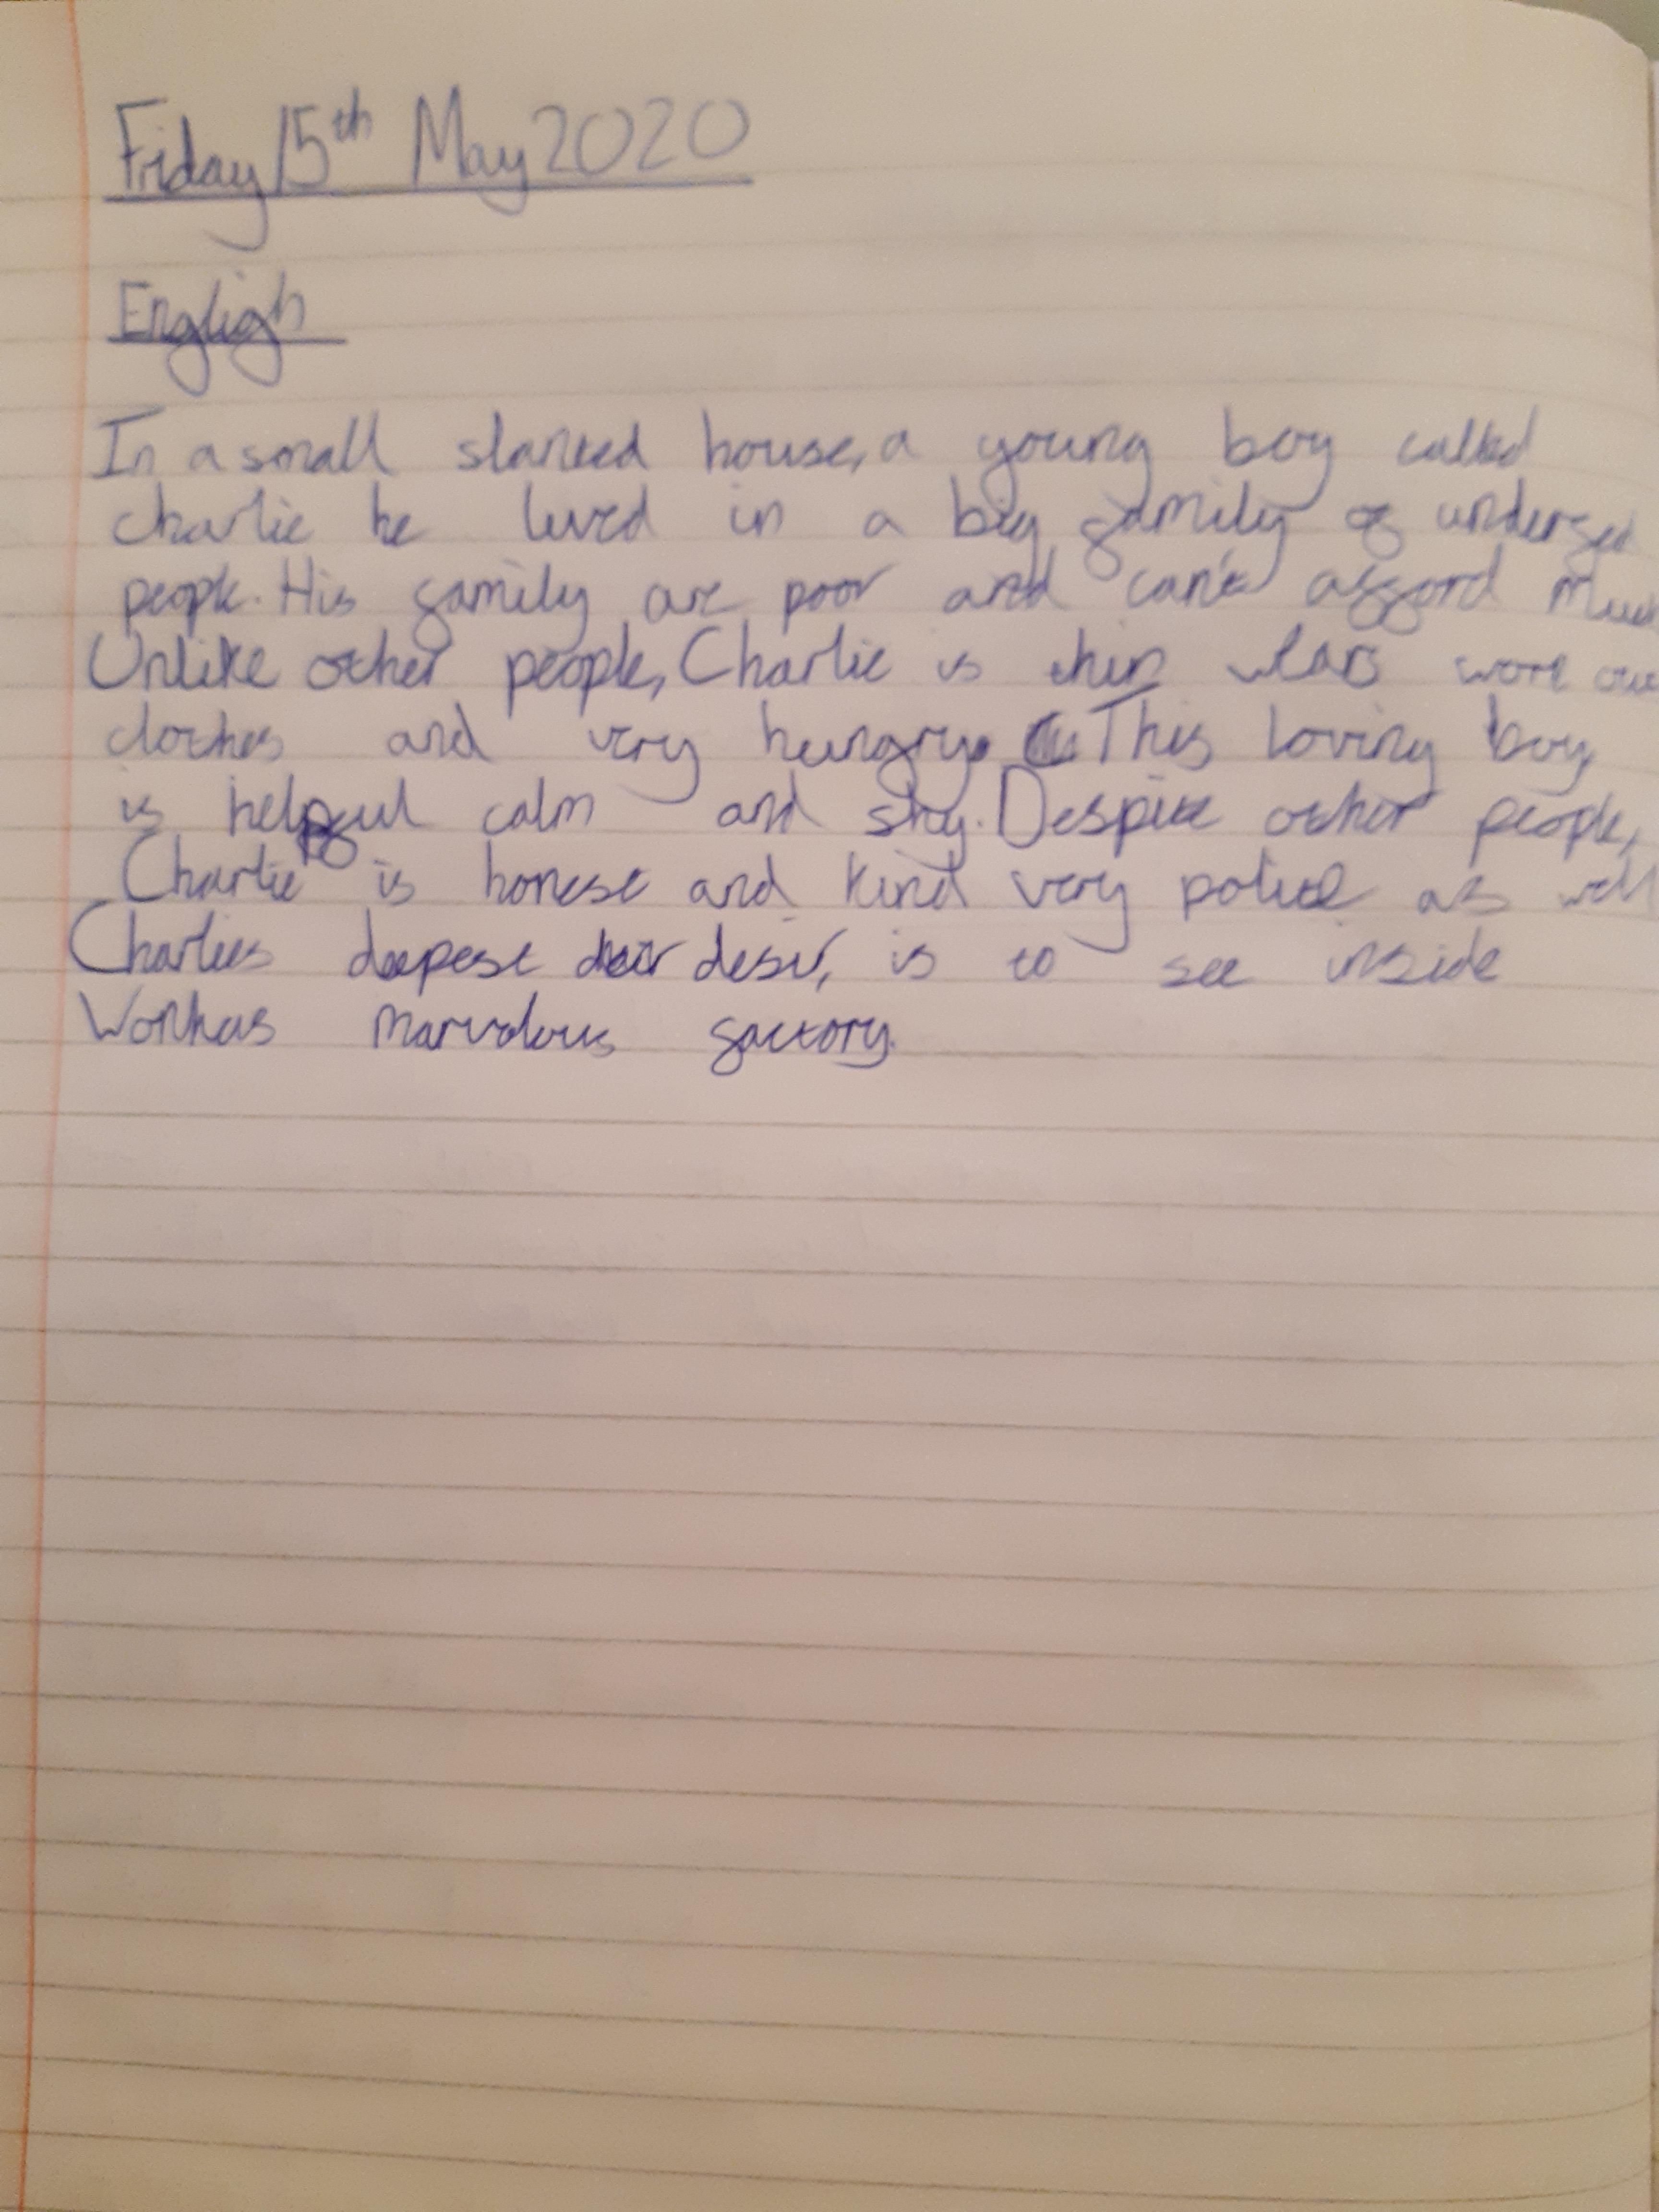 Friday 15th May 2020
English
In a small slanted house, a young boy called
charlie he lived in a big family of undersed
people. His family are poor and can't afford much
Unlike other people, Charlie is thin wears wore out
clothes and very hungry. This loving boy
is helpful calm and shy. Despite other people,
Charlie is honest and kind very polite as well
Charlies deepest desir, is to see inside
Wonkas marvolous factory.